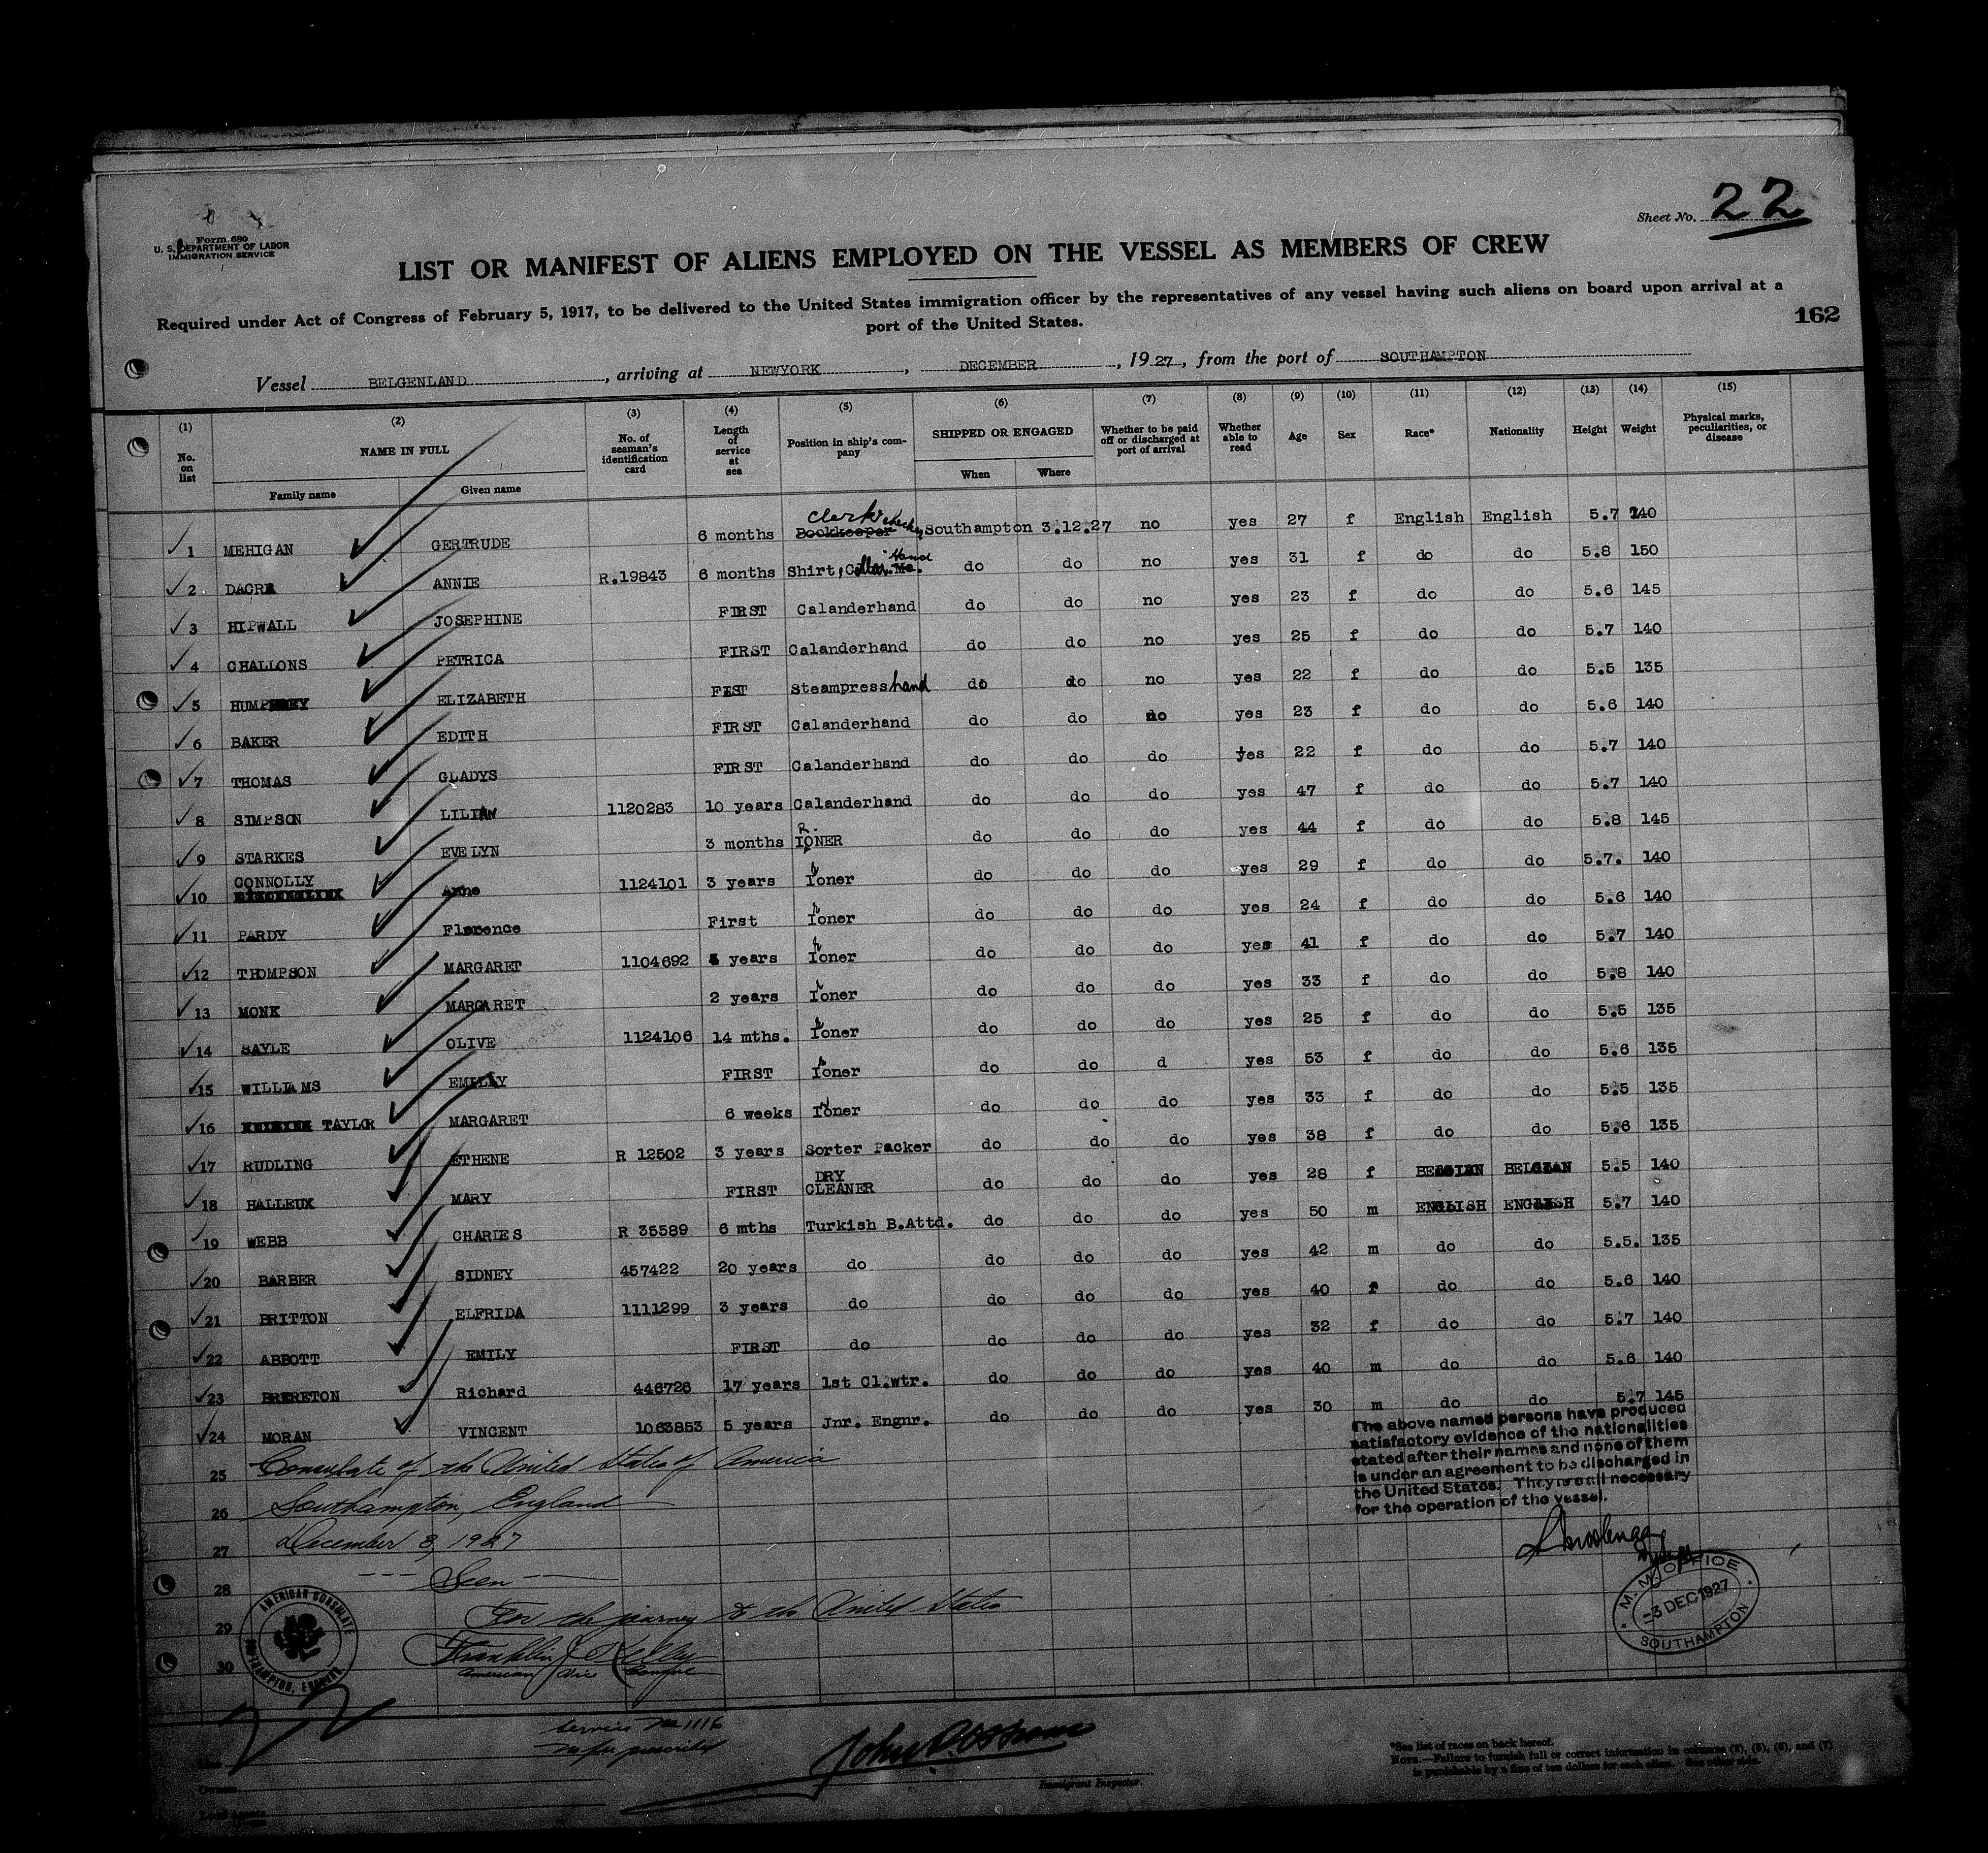 Sheet No. 22
Form 680
U. S. DEPARTMENT OF LABOR
IMMIGRATION SERVICE
LIST OR MANIFEST OF ALIENS EMPLOYED ON THE VESSEL AS MEMBERS OF CREW
Required under Act of Congress of February 5, 1917, to be delivered to the United States immigration officer by the representatives of any vessel having such aliens on board upon arrival at a
port of the United States.
162
Vessel BELGENLAND, arriving at NEWYORK, DECEMBER, 1927, from the port of SOUTHAMPTON
(1) (2) (3) (4) (5) (6) (7) (8) (9) (10) (11) (12) (13) (14) (15)
No. on list NAME IN FULL No. of seaman's identification card Length of service at sea Position in ship's company SHIPPED OR ENGAGED Whether to be paid off or discharged at port of arrival Whether able to read Age Sex Race* Nationality Height Weight Physical marks, peculiarities, or disease
Family name Given name When Where
1 MEHIGAN GERTRUDE 6 months Bookkeeper Clerk Southampton 3.12.27 no yes 27 f English English 5.7 140
2 DACRE ANNIE R.19843 6 months Shirt, Collar Hand do do no yes 31 f do do 5.8 150
3 HIPWALL JOSEPHINE FIRST Calanderhand do do no yes 23 f do do 5.6 145
4 CHALLONS PETRICA FIRST Calanderhand do do no yes 25 f do do 5.7 140
5 HUMPHREY ELIZABETH FIRST Steampress hand do do no yes 22 f do do 5.5 135
6 BAKER EDITH FIRST Calanderhand do do do yes 23 f do do 5.6 140
7 THOMAS GLADYS FIRST Calanderhand do do do yes 22 f do do 5.7 140
8 SIMPSON LILIAN 1120283 10 years Calanderhand do do do yes 47 f do do 5.7 140
9 STARKES EVELYN 3 months IRONER do do do yes 44 f do do 5.8 145
10 CONNOLLY Anne 1124101 3 years Ironer do do do yes 29 f do do 5.7. 140
11 PARDY Florence First Ironer do do do yes 24 f do do 5.6 140
12 THOMPSON MARGARET 1104692 years Ironer do do do yes 41 f do do 5.7 140
13 MONK MARGARET 2 years Ironer do do do yes 33 f do do 5.8 140
14 SAYLE OLIVE 1124106 14 mths. Ironer do do do yes 25 f do do 5.5 135
15 WILLIAMS EMILY FIRST Ironer do do d yes 53 f do do 5.6 135
16 TAYLOR MARGARET 6 weeks Ironer do do do yes 33 f do do 5.5 135
17 RUDLING ETHENE R 12502 3 years Sorter Packer do do do yes 38 f do do 5.6 135
18 HALLEUX MARY FIRST DRY CLEANER do do do yes 28 f BELGIAN BELGIAN 5.5 140
19 WEBB CHARLES R 35589 6 mths Turkish B.Attd. do do do yes 50 m ENGLISH ENGLISH 5.7 140
20 BARBER SIDNEY 457422 20 years do do do do yes 42 m do do 5.5. 135
21 BRITTON ELFRIDA 1111299 3 years do do do do yes 40 f do do 5.6 140
22 ABBOTT EMILY FIRST do do do do yes 32 f do do 5.7 140
23 BRERETON Richard 446726 17 years 1st Cl.wtr. do do do yes 40 m do do 5.6 140
24 MORAN VINCENT 1063853 5 years Jnr. Engnr. do do do yes 30 m do do 5.7 145
The above named persons have produced
satisfactory evidence of the nationalities
stated after their names and none of them
is under an agreement to be discharged in
the United States. They are all necessary
for the operation of the vessel.
25 Consulate of the United States of America
26 Southampton, England
27 December 3, 1927
28 Seen
29 For the journey to the United States
30 Franklin J. Kelley
American Vice Consul
AMERICAN CONSULATE
SOUTHAMPTON, ENGLAND
M. M. OFFICE
-3 DEC 1927
SOUTHAMPTON
22
Service No 1116
No fee prescribed
Immigrant Inspector.
Owners
Local Agents
*See list of races on back hereof.
NOTE.—Failure to furnish full or correct information in columns (2), (5), (6), and (7)
is punishable by a fine of ten dollars for each alien. See other side.